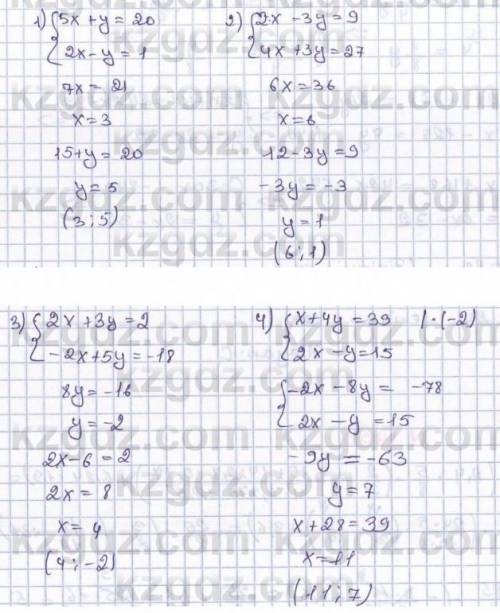 1) { 5x + y = 20
2x - y = 1
7x = 21
x = 3
15 + y = 20
y = 5
(3; 5)
2) { 2x - 3y = 9
4x + 3y = 27
6x = 36
x = 6
12 - 3y = 9
-3y = -3
y = 1
(6; 1)
3) { 2x + 3y = 2
-2x + 5y = -18
8y = -16
y = -2
2x - 6 = 2
2x = 8
x = 4
(4; -2)
4) { x + 4y = 39 | · (-2)
2x - y = 15
{ -2x - 8y = -78
2x - y = 15
-9y = -63
y = 7
x + 28 = 39
x = 11
(11; 7)
kzgdz.com